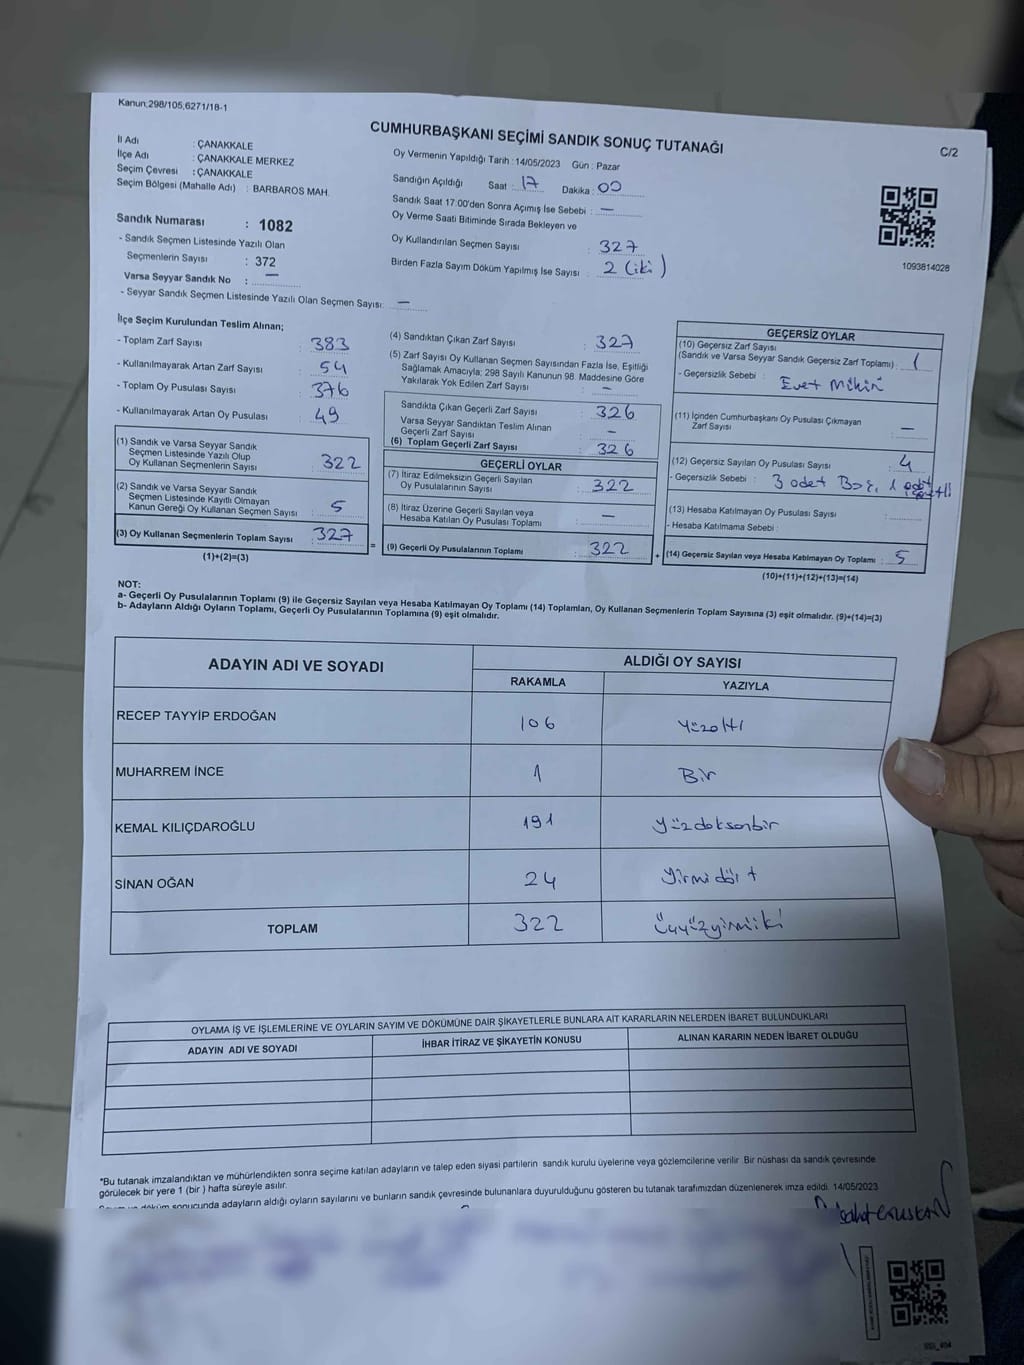 Kanun;298/105,6271/18-1
CUMHURBAŞKANI SEÇİMİ SANDIK SONUÇ TUTANAĞI
C/2
İl Adı : ÇANAKKALE
İlçe Adı : ÇANAKKALE MERKEZ
Seçim Çevresi : ÇANAKKALE
Seçim Bölgesi (Mahalle Adı) : BARBAROS MAH.
Sandık Numarası : 1082
- Sandık Seçmen Listesinde Yazılı Olan
Seçmenlerin Sayısı : 372
Varsa Seyyar Sandık No : —
- Seyyar Sandık Seçmen Listesinde Yazılı Olan Seçmen Sayısı: —
Oy Vermenin Yapıldığı Tarih : 14/05/2023 Gün : Pazar
Sandığın Açıldığı Saat : 17 Dakika : 00
Sandık Saat 17:00'den Sonra Açımış İse Sebebi : —
Oy Verme Saati Bitiminde Sırada Bekleyen ve
Oy Kullandırılan Seçmen Sayısı : 327
Birden Fazla Sayım Döküm Yapılmış İse Sayısı : 2 (iki)
1093814028
İlçe Seçim Kurulundan Teslim Alınan;
- Toplam Zarf Sayısı : 383
- Kullanılmayarak Artan Zarf Sayısı : 54
- Toplam Oy Pusulası Sayısı : 376
- Kullanılmayarak Artan Oy Pusulası : 49
(1) Sandık ve Varsa Seyyar Sandık
Seçmen Listesinde Yazılı Olup
Oy Kullanan Seçmenlerin Sayısı : 322
(2) Sandık ve Varsa Seyyar Sandık
Seçmen Listesinde Kayıtlı Olmayan
Kanun Gereği Oy Kullanan Seçmen Sayısı : 5
(3) Oy Kullanan Seçmenlerin Toplam Sayısı : 327
(1)+(2)=(3)
(4) Sandıktan Çıkan Zarf Sayısı : 327
(5) Zarf Sayısı Oy Kullanan Seçmen Sayısından Fazla İse, Eşitliği
Sağlamak Amacıyla; 298 Sayılı Kanunun 98. Maddesine Göre
Yakılarak Yok Edilen Zarf Sayısı : —
Sandıkta Çıkan Geçerli Zarf Sayısı : 326
Varsa Seyyar Sandıktan Teslim Alınan
Geçerli Zarf Sayısı : —
(6) Toplam Geçerli Zarf Sayısı : 326
GEÇERLİ OYLAR
(7) İtiraz Edilmeksizin Geçerli Sayılan
Oy Pusulalarının Sayısı : 322
(8) İtiraz Üzerine Geçerli Sayılan veya
Hesaba Katılan Oy Pusulası Toplamı : —
= (9) Geçerli Oy Pusulalarının Toplamı : 322 +
GEÇERSİZ OYLAR
(10) Geçersiz Zarf Sayısı
(Sandık ve Varsa Seyyar Sandık Geçersiz Zarf Toplamı) : 1
- Geçersizlik Sebebi : Evet
(11) İçinden Cumhurbaşkanı Oy Pusulası Çıkmayan
Zarf Sayısı : —
(12) Geçersiz Sayılan Oy Pusulası Sayısı : 4
- Geçersizlik Sebebi : 3 adet Boş, 1 adet
(13) Hesaba Katılmayan Oy Pusulası Sayısı :
- Hesaba Katılmama Sebebi :
(14) Geçersiz Sayılan veya Hesaba Katılmayan Oy Toplamı : 5
(10)+(11)+(12)+(13)=(14)
NOT:
a- Geçerli Oy Pusulalarının Toplamı (9) ile Geçersiz Sayılan veya Hesaba Katılmayan Oy Toplamı (14) Toplamları, Oy Kullanan Seçmenlerin Toplam Sayısına (3) eşit olmalıdır. (9)+(14)=(3)
b- Adayların Aldığı Oyların Toplamı, Geçerli Oy Pusulalarının Toplamına (9) eşit olmalıdır.
ADAYIN ADI VE SOYADI ALDIĞI OY SAYISI
RAKAMLA YAZIYLA
RECEP TAYYİP ERDOĞAN 106 Yüzaltı
MUHARREM İNCE 1 Bir
KEMAL KILIÇDAROĞLU 191 Yüzdoksanbir
SİNAN OĞAN 24 Yirmidört
TOPLAM 322 Üçyüzyirmiiki
OYLAMA İŞ VE İŞLEMLERİNE VE OYLARIN SAYIM VE DÖKÜMÜNE DAİR ŞİKAYETLERLE BUNLARA AİT KARARLARIN NELERDEN İBARET BULUNDUKLARI
ADAYIN ADI VE SOYADI İHBAR İTİRAZ VE ŞİKAYETİN KONUSU ALINAN KARARIN NEDEN İBARET OLDUĞU
*Bu tutanak imzalandıktan ve mühürlendikten sonra seçime katılan adayların ve talep eden siyasi partilerin sandık kurulu üyelerine veya gözlemcilerine verilir. Bir nüshası da sandık çevresinde
görülecek bir yere 1 (bir ) hafta süreyle asılır.
sonucunda adayların aldığı oyların sayılarını ve bunların sandık çevresinde bulunanlara duyurulduğunu gösteren bu tutanak tarafımızdan düzenlenerek imza edildi. 14/05/2023